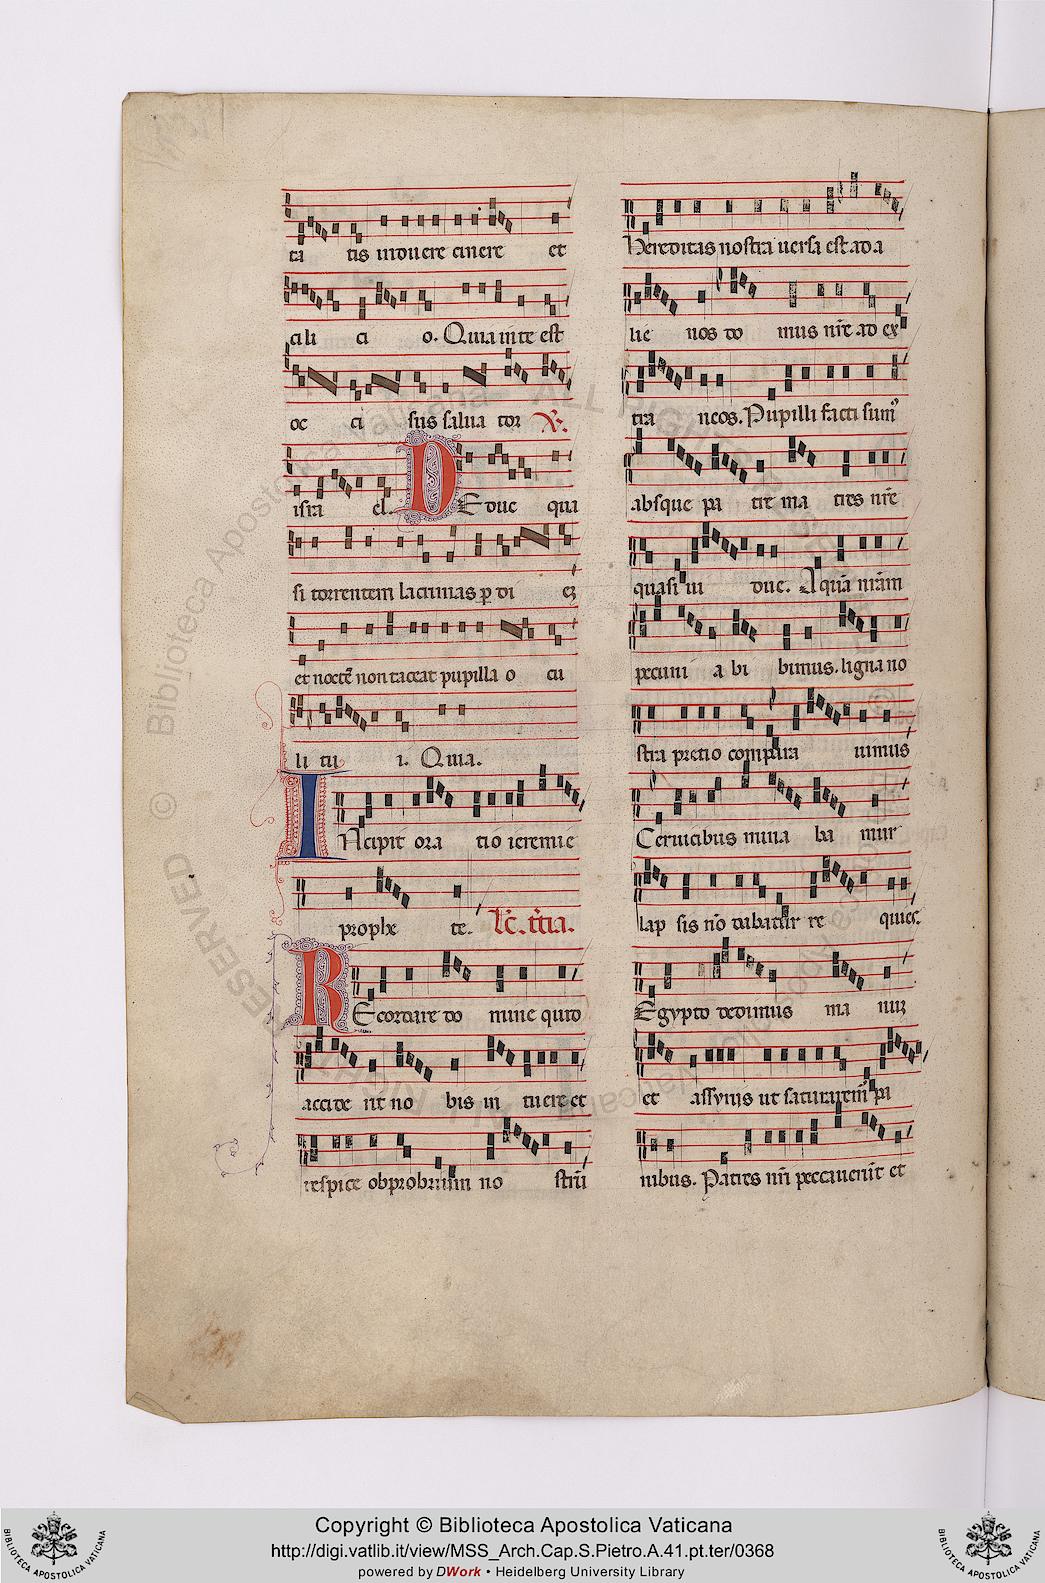 ta tis induere cinere et
cili ci o. Quia in te est
oc ci sus salua tor ℟.
isra el. DEduc qua
si torrentem lacrimas ꝑ di eʒ
et noctē non taceat pupilla o cu
li tu i. Quia.
INcipit ora tio ieremie
prophe te. Lc̄. t̄cia.
REcordare do mine quid
accide rit no bis in tuere et
respice obprobrium no strū
Hereditas nostra uersa est ad a
lie nos do mus nr̄e ad ex
tra neos. Pupilli facti sumꝰ
absque pa tre ma tres nr̄e
quasi ui due. Aquā nr̄am
pecuni a bi bimus. ligna no
stra pretio compara uimus
Ceruicibus mina ba mur
lap sis nō dabatur re quies.
Egypto dedimus ma nuʒ
et assyriis ut saturaremꝰ pa
nibus. Patres nr̄i peccauerūt et
© Biblioteca Apostolica Vaticana ALL RIGHTS RESERVED
BIBLIOTECA APOSTOLICA VATICANA
Copyright © Biblioteca Apostolica Vaticana
http://digi.vatlib.it/view/MSS_Arch.Cap.S.Pietro.A.41.pt.ter/0368
powered by DWork • Heidelberg University Library
BIBLIOTECA APOSTOLICA VATICANA